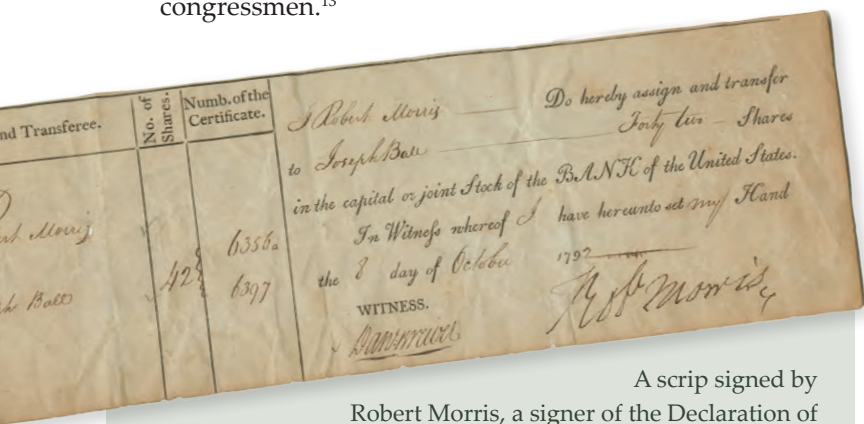 congressmen.¹³
nd Transferee.
No. of Shares.
Numb. of the
Certificate.
I Robert Morris Do hereby assign and transfer
to Joseph Ball Forty two Shares
in the capital or joint Stock of the BANK of the United States.
In Witness whereof I have hereunto set my Hand
the 8 day of October 1792
WITNESS.
Robt Morris
ert Morris
ph Ball
42
6356
6397
A scrip signed by
Robert Morris, a signer of the Declaration of